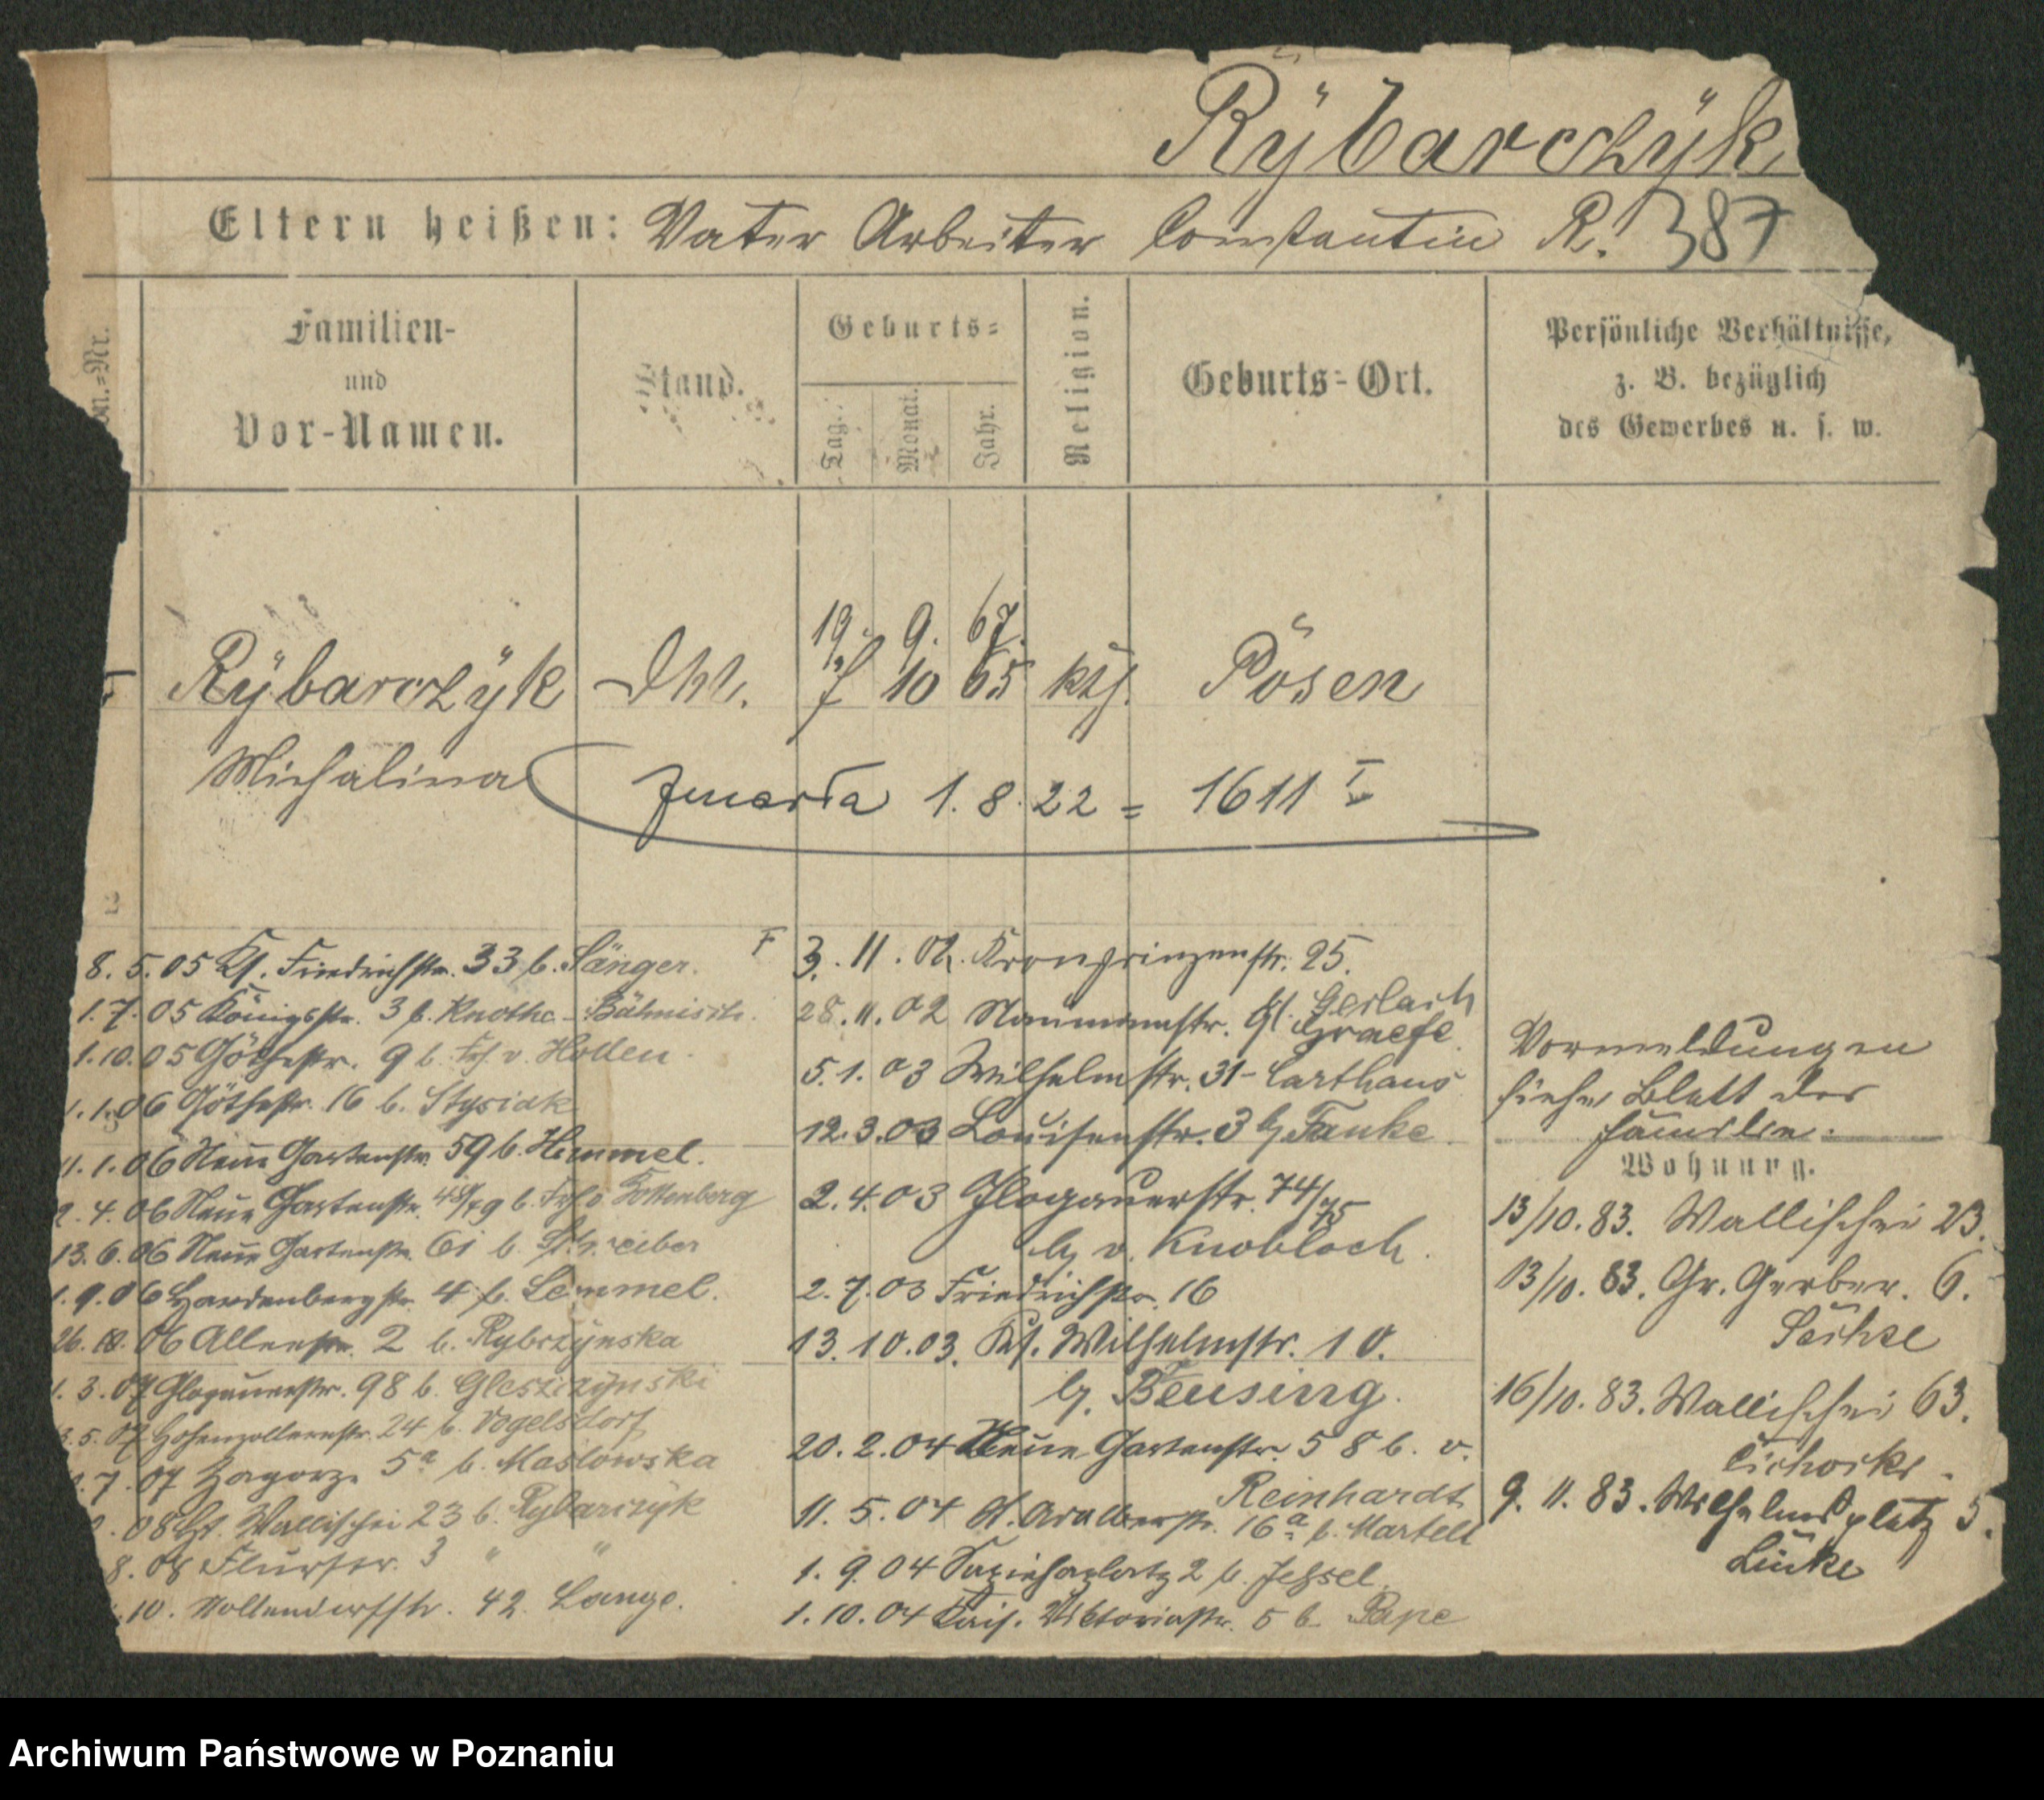 Rÿbarczÿk
Eltern heißen: Vater Arbeiter Constantin R. 387
Familien-
und
Vor-Namen.
Stand.
Geburts-
Tag.
Monat.
Jahr.
Religion.
Geburts-Ort.
Persönliche Verhältnisse,
z. B. bezüglich
des Gewerbes u. s. w.
19. 9. 67.
Rÿbarczÿk 10 65 kth. Posen
Michalina
zmarła 1. 8. 22 = 1611 I
8. 5. 05 Kl. Friedrichstr. 33 b. Sänger.
1. 7. 05 Königsstr. 3 b. Knothe - Bähnisch.
1. 10. 05 Göthestr. 9 b. Frf. v. Hollen.
1. 1. 06 Göthestr. 16 b. Stysiak
11. 1. 06 Neue Gartenstr. 59 b. Himmel.
2. 4. 06 Neue Gartenstr. b.
13. 6. 06 Neue Gartenstr. 61 b. Schreiber
1. 9. 06 Hardenbergstr. 4 b. Lemmel.
26. 06 Alleestr. 2 b. Rybrzÿnska
1. 3. 07 Glogauerstr. 98 b.
5. 07 Hohenzollernstr. 24 b. Vogelsdorf
7. 07 Zagorze 5a b. Maslowska
08 Wallischei 23 b. Rybarczÿk
8. 08 Flurstr. 3 " "
10. Nollendorfstr. 42. Lange.
F 3. 11. 02. Kronprinzenstr. 25.
28. 11. 02 Naumannstr. Gerlach
Graefe
5. 1. 03 Wilhelmstr. 31 - Carthaus
12. 3. 03 Louisenstr. 3 b. Fanke
2. 4. 03 Glogauerstr. 74/75
b. v. Knobloch.
2. 7. 03 Friedrichstr. 16
13. 10. 03. Kl. Wilhelmstr. 10.
b. Beusing.
20. 2. 04 Neue Gartenstr. 58 b. v.
Reinhardt
11. 5. 04 16a b. Martell
1. 9. 04 Sapiehaplatz 2 b. Jessel.
1. 10. 04 Kais. Viktoriastr. 5 b. Pape
Vormeldungen
siehe Blatt der
Familie.
Wohnung.
13/10. 83. Wallischei 23.
13/10. 83. Gr. Gerber. 6.
16/10. 83. Wallischei 63.
Cichocki.
9. 11. 83. Wilhelmsplatz 5.
Lücke
Archiwum Państwowe w Poznaniu